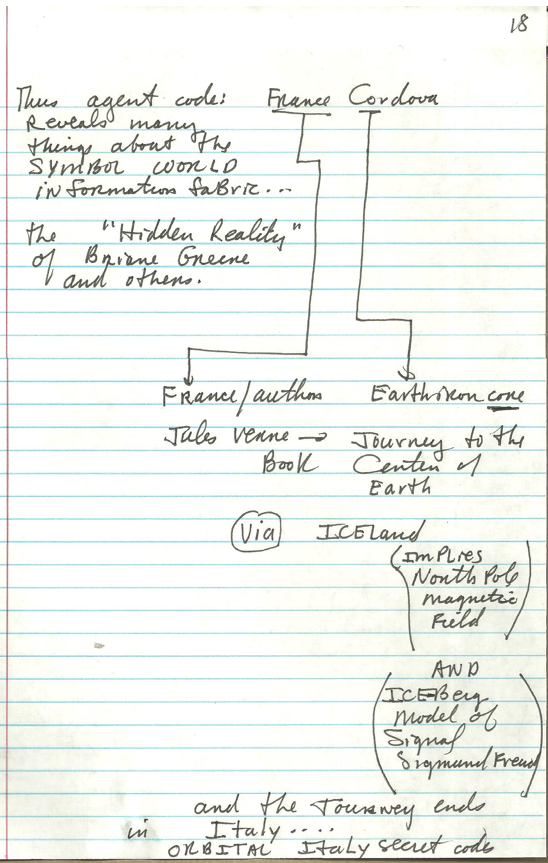 18
Thus agent code: France Cordova
Reveals many
things about the
SYMBOL WORLD
information faBric...
the "Hidden Reality"
of Briane Greene
and others.
France/author Earth iron core
Jules Verne → Journey to the
Book Center of
Earth
Via ICELand
(ImPlies
North Pole
magnetic
Field)
AND
(ICE-Berg
Model of
Signal
Sigmund Freud)
and the Journey ends
in Italy....
ORBITAL Italy secret code